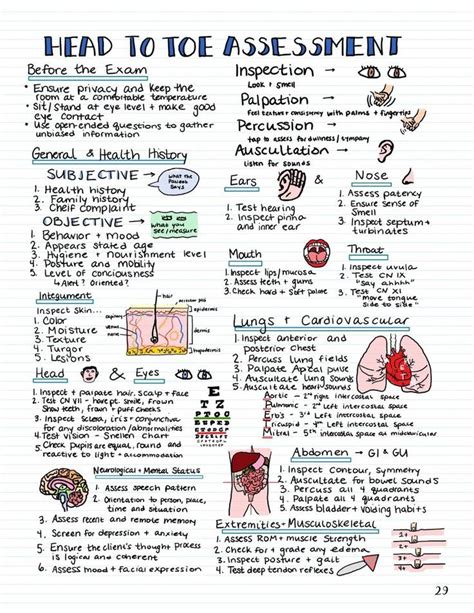 HEAD TO TOE ASSESSMENT
Before the Exam
• Ensure privacy and keep the
room at a comfortable temperature
• Sit/stand at eye level + make good
eye contact
• Use open-ended questions to gather
unbiased information
Inspection →
Look + smell
Palpation →
Feel texture + consistency with palms + fingertips
Percussion →
tap to assess for dullness/tympany
Auscultation →
listen for sounds
General & Health History
SUBJECTIVE →
what the Patient Says
1. Health history
2. Family history
3. Cheif complaint
OBJECTIVE →
what you see/measure
1. Behavior + mood
2. Appears stated age
3. Hygiene + nourishment level
4. Posture and mobility
5. Level of conciousness
↳ Alert? Oriented?
Ears
&
Nose
1. Test hearing
2. Inspect pinna
and inner ear
1. Assess patency
2. Ensure sense of
Smell
3. Inspect septum +
turbinates
Mouth
1. Inspect lips/mucosa
2. Assess teeth + gums
3. Check hard + soft palate
Throat
1. Inspect uvula
2. Test CN IX
"Say ahhhh"
3. Test CN XII
"move tongue
side to side"
Integument
Inspect skin...
1. Color
2. Moisture
3. Texture
4. Turgor
5. Lesions
hair
epidermis
dermis
hypodermis
Lungs + Cardiovascular
1. Inspect anterior and
posterior chest
2. Percuss lung fields
3. Palpate Apical pulse
4. Auscultate lung sounds
5. Auscultate heart sounds
Aortic - 2nd right intercostal space
Pulmonic - 2nd Left intercostal space
Erb's - 3rd Left intercostal space
Tricuspid - 4th Left intercostal space
Mitral - 5th intercostal space at midclavicular
Head
&
Eyes
1. Inspect + palpate hair, scalp + face
2. Test CN VII - have pt. smile, frown
Show teeth, frown + puff cheeks
3. Inspect sclera, iris + conjunctiva
for any discoloration/abnormalities
4. Test vision - Snellen chart
5. Check pupils are equal, round + and
reactive to light + accommodation
E
T Z
Neurological + Mental Status
1. Assess speech pattern
2. Orientation to person, place,
time and situation
3. Assess recent and remote memory
4. Screen for depression + anxiety
5. Ensure the client's thought process
is logical and coherent
6. Assess mood + facial expression
Abdomen → GI & GU
1. Inspect Contour, Symmetry
2. Auscultate for bowel sounds
3. Percuss all 4 quadrants
4. Palpate all 4 quadrants
5. Assess bladder + voiding habits
Extremities + Musculoskeletal
1. Assess ROM + muscle Strength
2. Check for + grade any edema
3. Inspect gait + posture
4. Test deep tendon reflexes
1+
2+
3+
4+
29